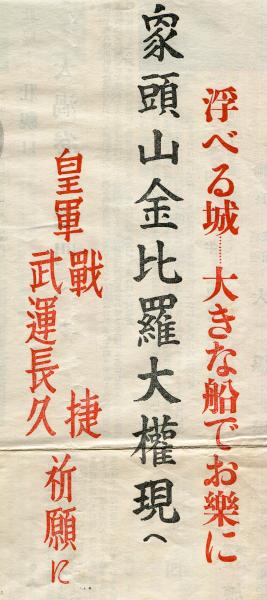 浮べる城……大きな船でお樂に
象頭山金比羅大權現へ
皇軍
戰捷
武運長久
祈願に